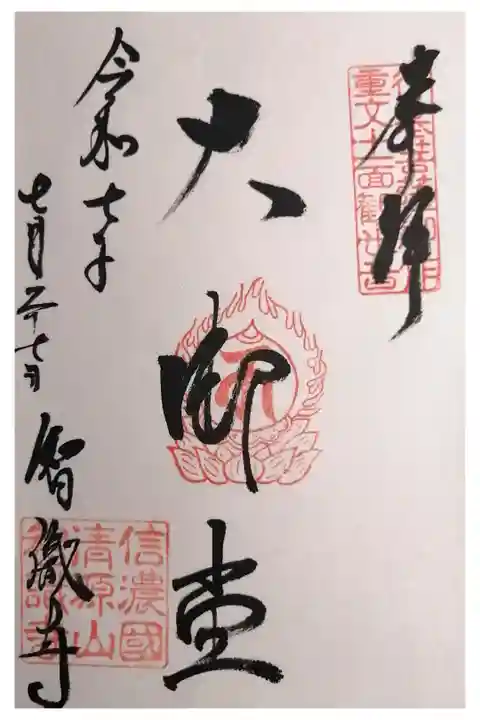 奉拝
重文十一面観世音
大御堂
令和七年
七月二十七日
智識寺
信濃國
清源山
智識寺